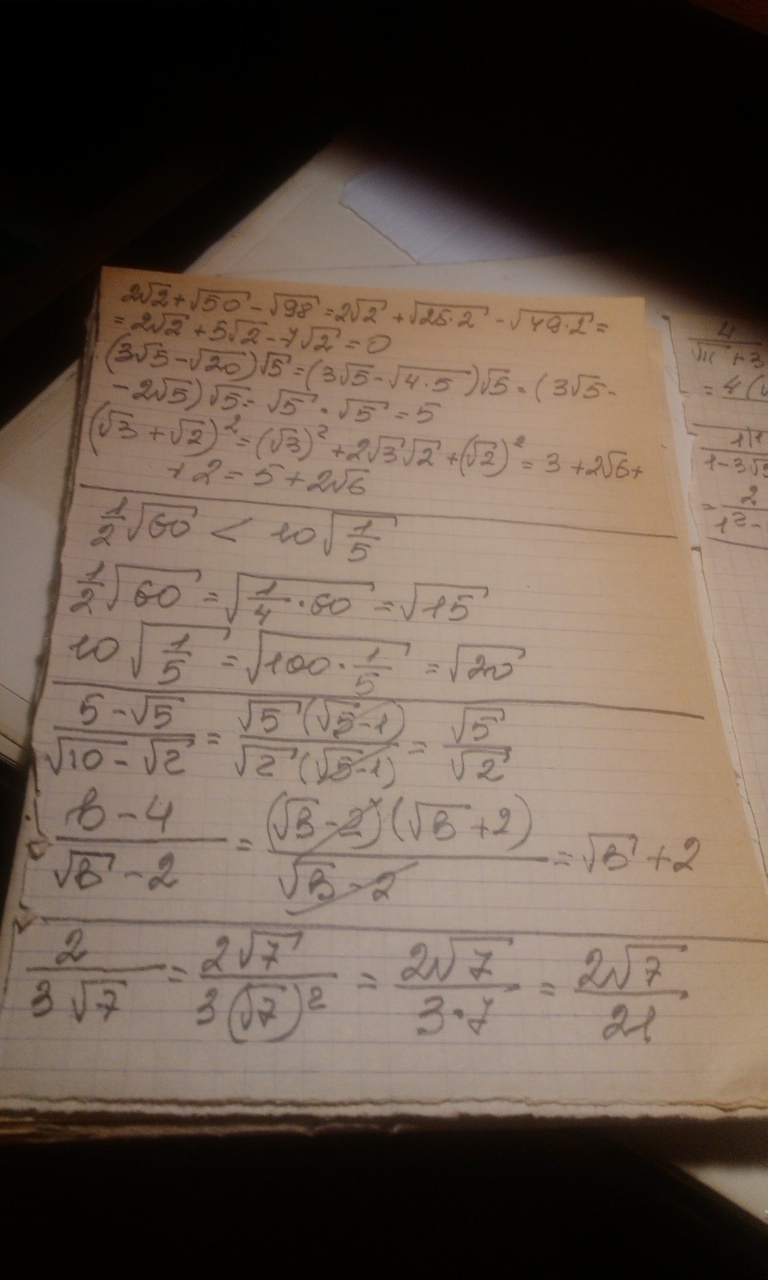 2√2 + √50 - √98 = 2√2 + √25·2 - √49·2 =
= 2√2 + 5√2 - 7√2 = 0
(3√5 - √20)√5 = (3√5 - √4·5)√5 = (3√5 -
- 2√5)√5 = √5 · √5 = 5
(√3 + √2)² = (√3)² + 2√3√2 + (√2)² = 3 + 2√6 +
+ 2 = 5 + 2√6
1/2 √60 < 10√1/5
1/2 √60 = √1/4 · 60 = √15
10√1/5 = √100 · 1/5 = √20
5 - √5 / √10 - √2 = √5 (√5 - 1) / √2 (√5 - 1) = √5 / √2
b - 4 / √b - 2 = (√b - 2)(√b + 2) / √b - 2 = √b + 2
2 / 3√7 = 2√7 / 3(√7)² = 2√7 / 3·7 = 2√7 / 21
= 4(
1 - 3√5
= 2